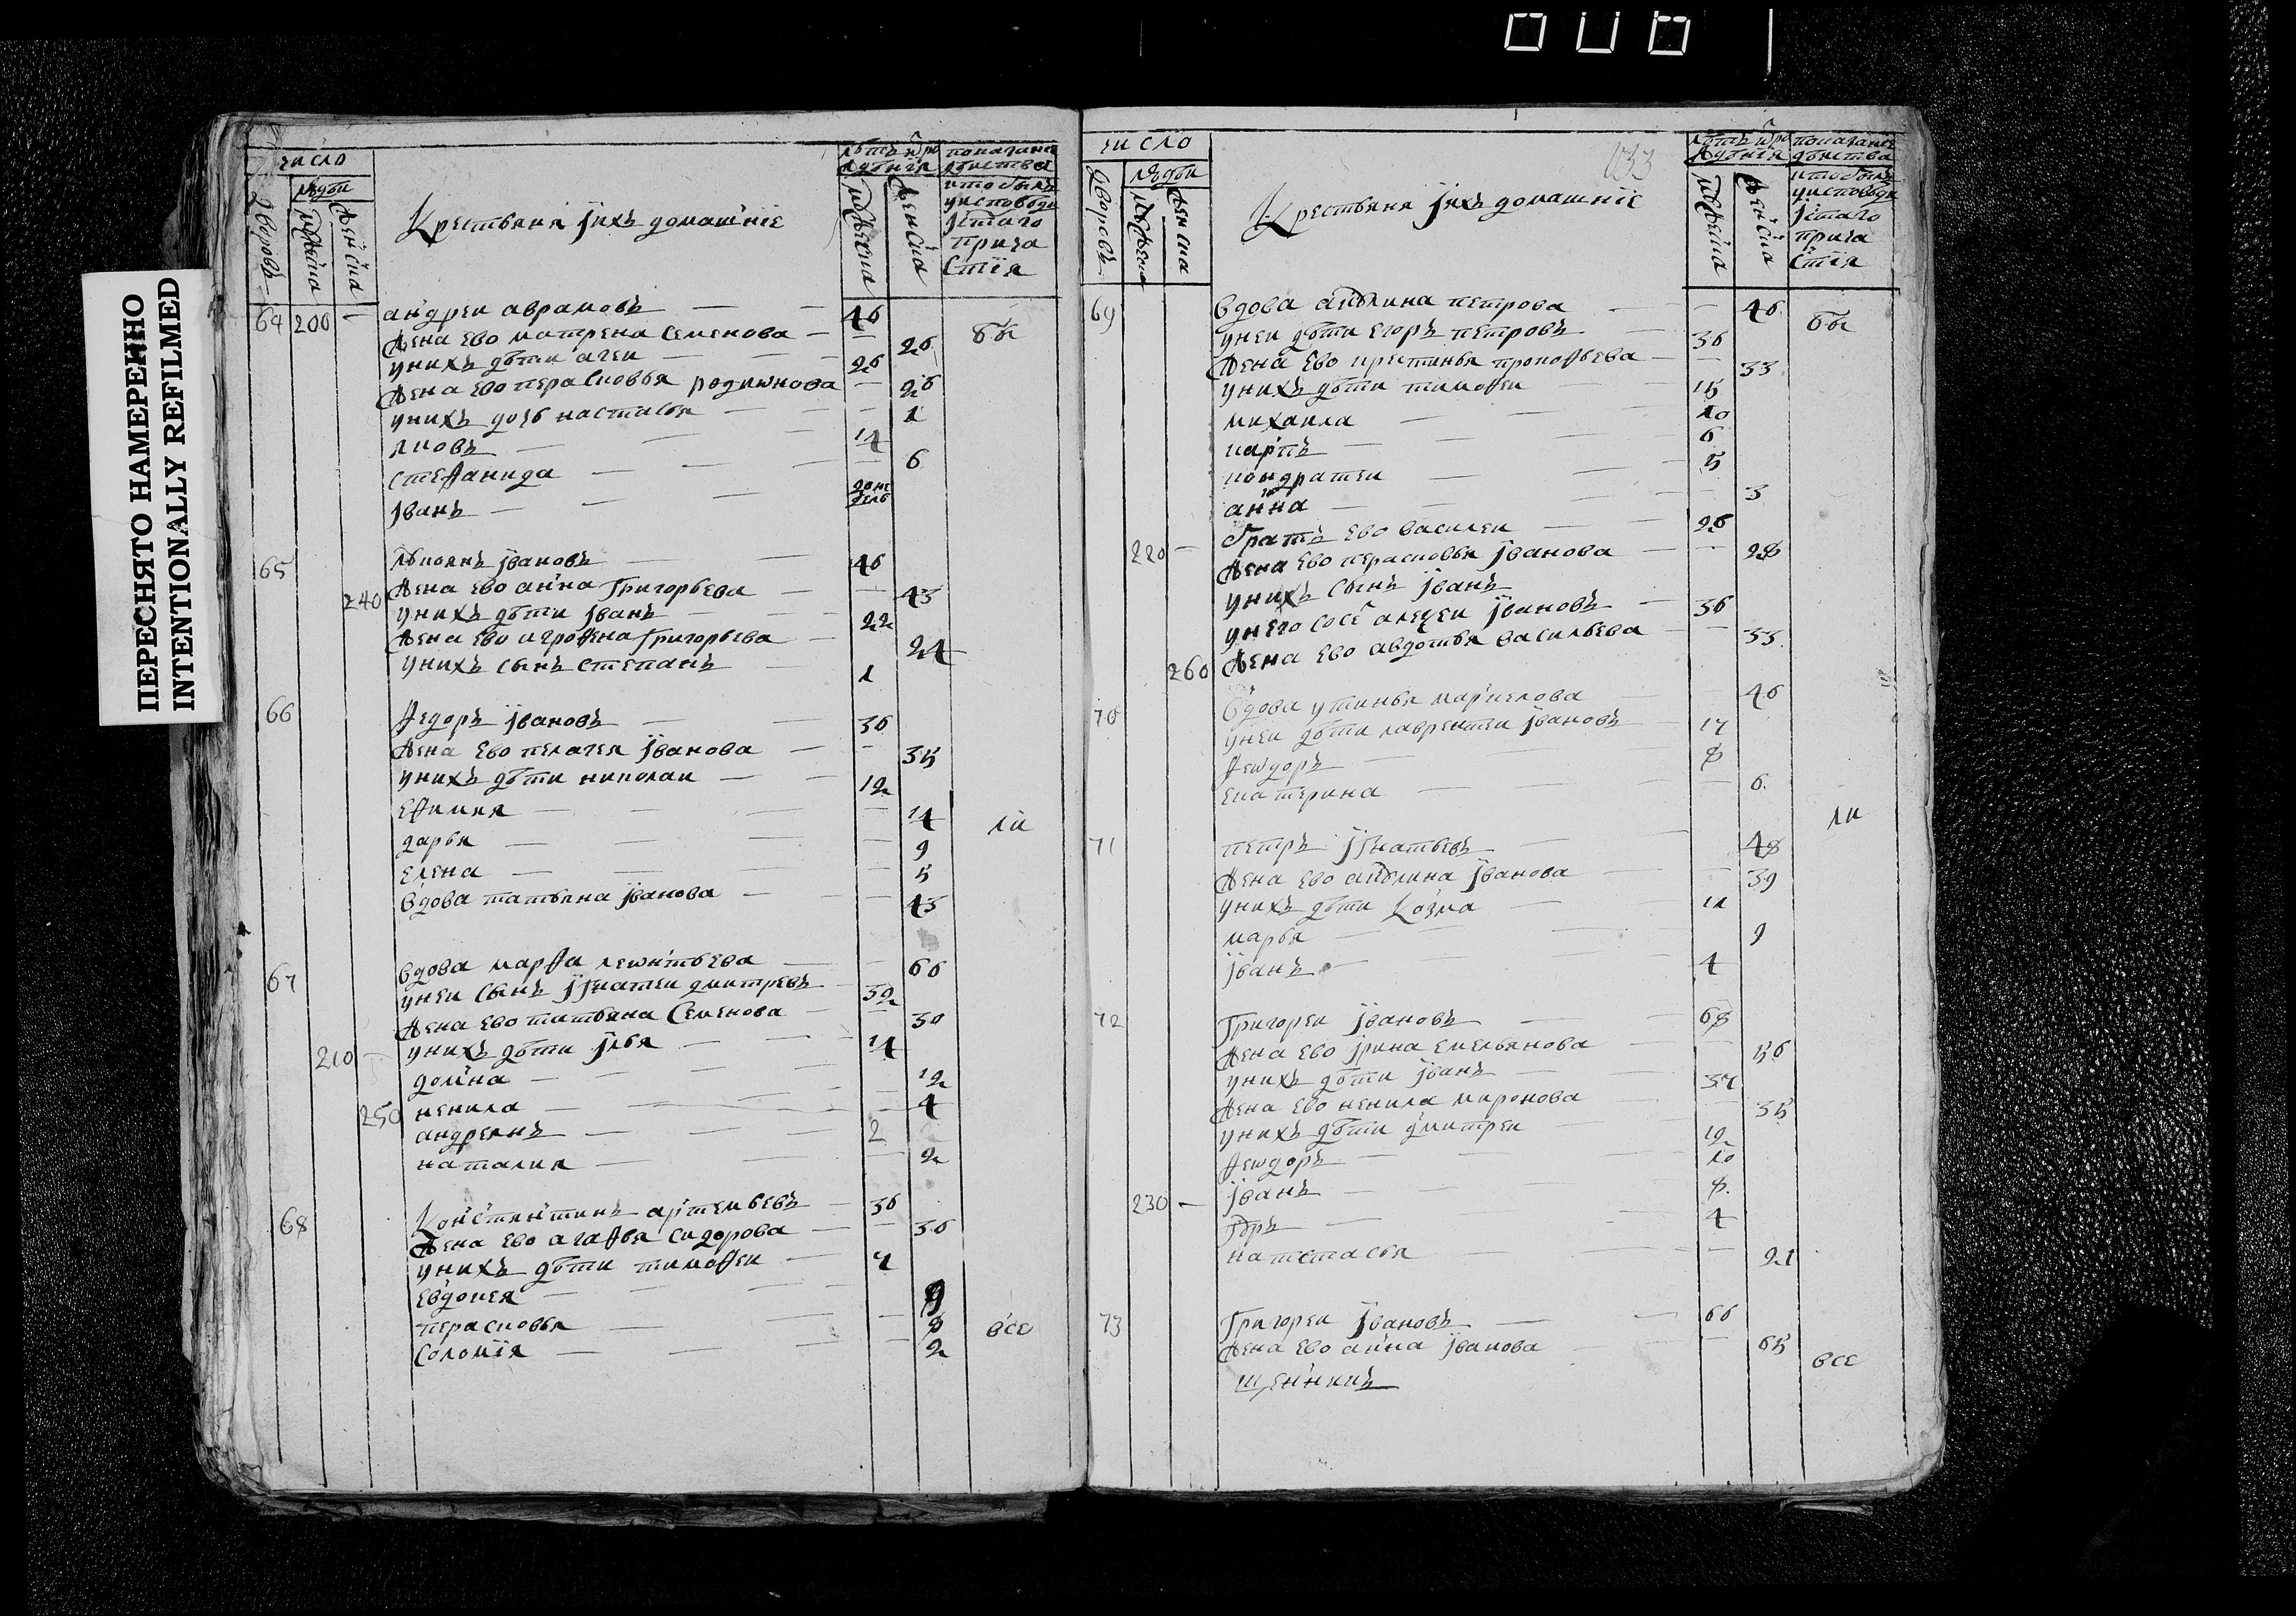 ПЕРЕСНЯТО НАМЕРЕННО
INTENTIONALLY REFILMED
число
дворовъ
людеи
мужеска
женска
Крестьяня їихъ домашнїе
лѣтъ
мужеска
женска
показание
действа
кто былъ
уисповеди
їстаго
прича
стїя
64 200 андреи аврамовъ 46
жена ево матрена семенова 26 бы
унихъ дѣти агеи 26
жена ево перасковья родишнова 26
унихъ дочь настасья 1
яковъ 14
стефанида 6
їванъ
65 ївановъ 46
240 жена ево анна григорьева 43
унихъ дѣти їванъ 22
жена ево агрофена григорьева 24
унихъ сынъ степанъ 1
66 федоръ ївановъ 36
жена ево пелагея їванова 35
унихъ дѣти николаи 12
ефимия 14 ли
дарья 9
елена 5
вдова татьяна їванова 43
67 вдова марфа леwнтьева 66
унеи сынъ їгнатеи дмитревъ 32
жена ево татьяна семенова 30
210 унихъ дѣти їлья 14
домна 12
250 ненила 4
андреянъ 2
наталия 2
68 Констянтинъ артемьевъ 36
жена ево агафья сидорова 36
унихъ дѣти тимофеи 4
евдокея 9
перасковья 8 все
соломїя 2
число
дворовъ
людеи
мужеска
женска
Крестьяня їихъ домашнїе
лѣтъ
мужеска
женска
показание
действа
кто былъ
уисповеди
їстаго
прича
стїя
69 вдова акулина петрова 46
унеи дѣти егоръ петровъ 36 бы
жена ево кристинья прокофьева 33
унихъ дѣти тимофеи 15
михаила 10
карпъ 6
кондратеи 5
анна 3
братъ ево василеи 26
220 жена ево перасковья їванова 28
унихъ сынъ їванъ
унего алеѯеи ївановъ 36
260 жена ево авдотья васильева 33
70 вдова устинья маркелова 46
унеи дѣти лаврентеи ївановъ 17
феwдоръ 8
екатерина 6
ли
71 петръ їгнатьевъ 48
жена ево акулина їванова 39
унихъ дѣти Козма 11
марья 9
їванъ 4
72 григореи ївановъ 68
жена ево їрина емельянова 56
унихъ дѣти їванъ 37
жена ево ненила миронова 35
унихъ дѣти дмитреи 12
феwдоръ 10
230 їванъ 8
4
21
73 григореи ївановъ 66
жена ево анна їванова 65 все
щенникъ